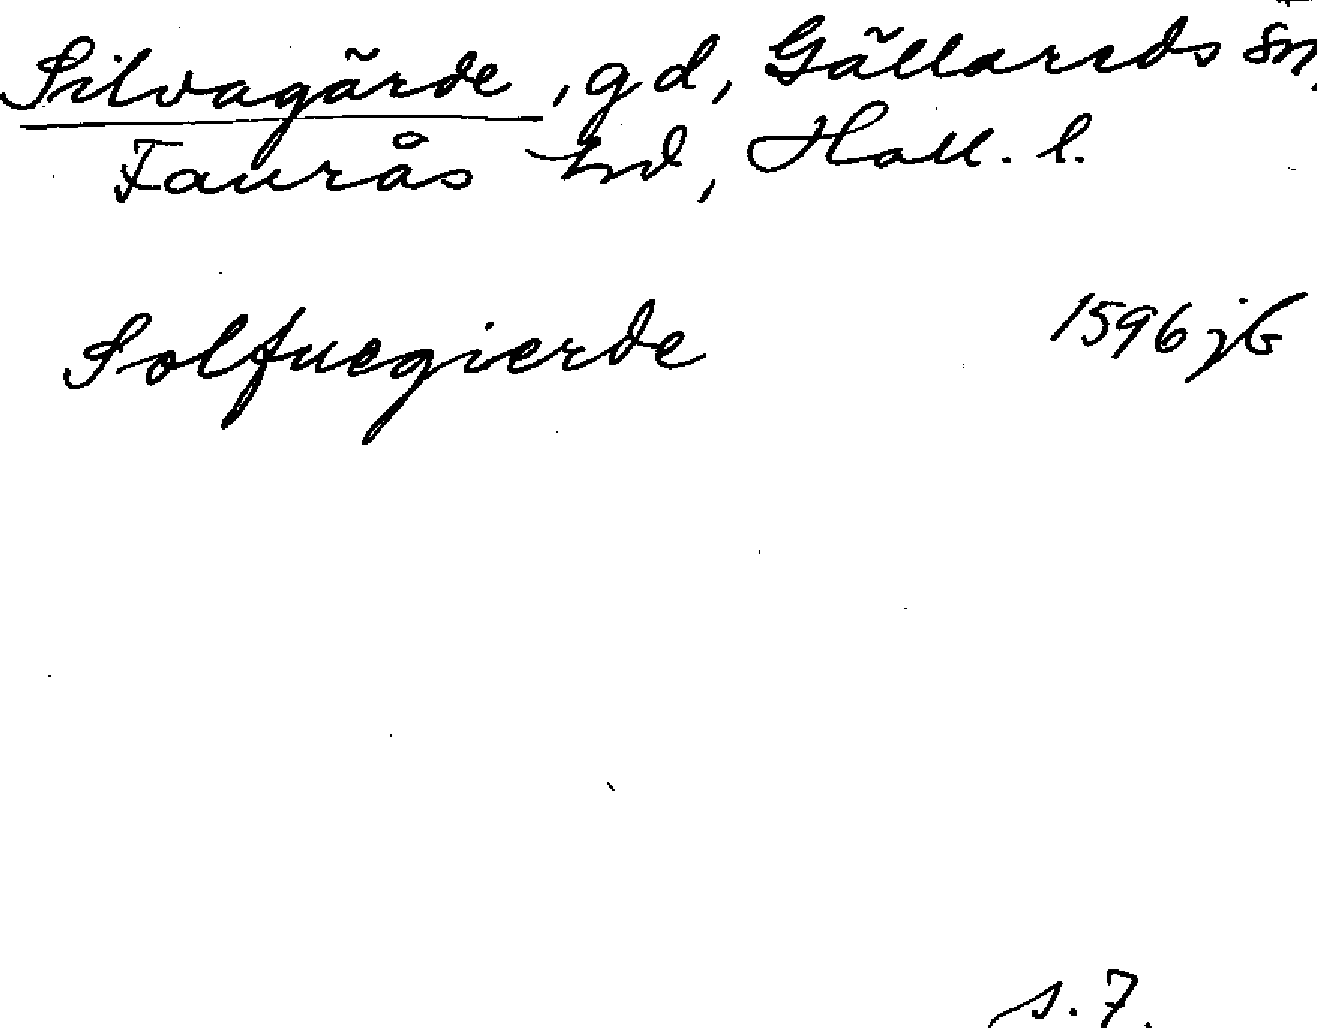 Silvagärde, gd, Gällareds sn,
Faurås hd, Hall. l.
Solfuegierde 1596 jb
s. 7.